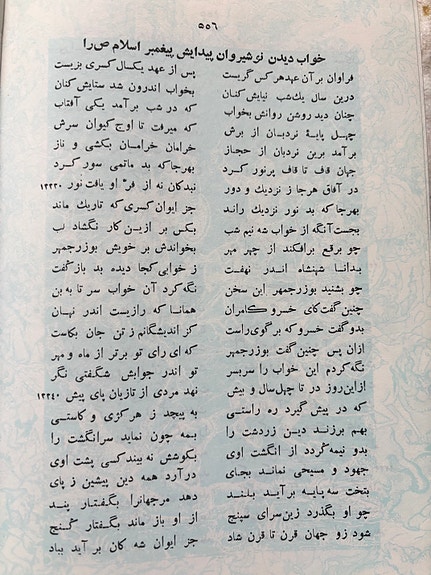 ۵۵۶
خواب دیدن نوشیروان پیدایش پیغمبر اسلام ص را
فراوان بر آن عهد هر کس گریست پس از عهد یکسال کسری بزیست
درین سال یک شب نیایش کنان بخواب اندرون شد ستایش کنان
چنان دید روشن روانش بخواب که در شب برآمد یکی آفتاب
چهل پایهٔ نردبان از برش که میرفت تا اوج کیوان سرش
برآمد برین نردبان از حجاز خرامان خرامان بکشی و ناز
جهان قاف تا قاف پرنور کرد بهر جا که بد ماتمی سور کرد
در آفاق هر جا ز نزدیک و دور نبد کان نه از فر او یافت نور ۱۳۳۳۰
بهر جا که بد نور نزدیک راند جز ایوان کسری که تاریک ماند
بجست آنگه از خواب شه نیم شب بکس بر ازین کار نگشاد لب
چو برقع برافکند از چهر مهر بخواندش بر خویش بوزرجمهر
بدانا شهنشاه اندر نهفت ز خوابی کجا دیده بد باز گفت
چو بشنید بوزرجمهر این سخن نگه کرد آن خواب سر تا به بن
چنین گفت کای خسرو کامران همانا که رازیست اندر نهان
بدو گفت خسرو که برگوی راست کز اندیشگانم ز تن جان بکاست
ازان پس چنین گفت بوزرجمهر که ای رای تو برتر از ماه و مهر
نگه کردم این خواب را سربسر تو اندر جوابش شگفتی نگر
ازین روز در تا چهل سال و بیش نهد مردی از تازیان پای پیش ۱۳۳۴۰
که در پیش گیرد ره راستی به پیچد ز هر کژی و کاستی
بهم برزند دین زردشت را بمه چون نماید سر انگشت را
بدو نیمه گردد از انگشت اوی بکوشش نه بیند کسی پشت اوی
جهود و مسیحی نماند بجای درآرد همه دین پیشین ز پای
بتخت سه پایه برآید بلند دهد مرجهانرا بگفتار پند
چو او بگذرد زین سرای سپنج از او باز ماند بگفتار گنج
شود زو جهان قرن تا قرن شاد جز ایوان شه کان برآید بباد